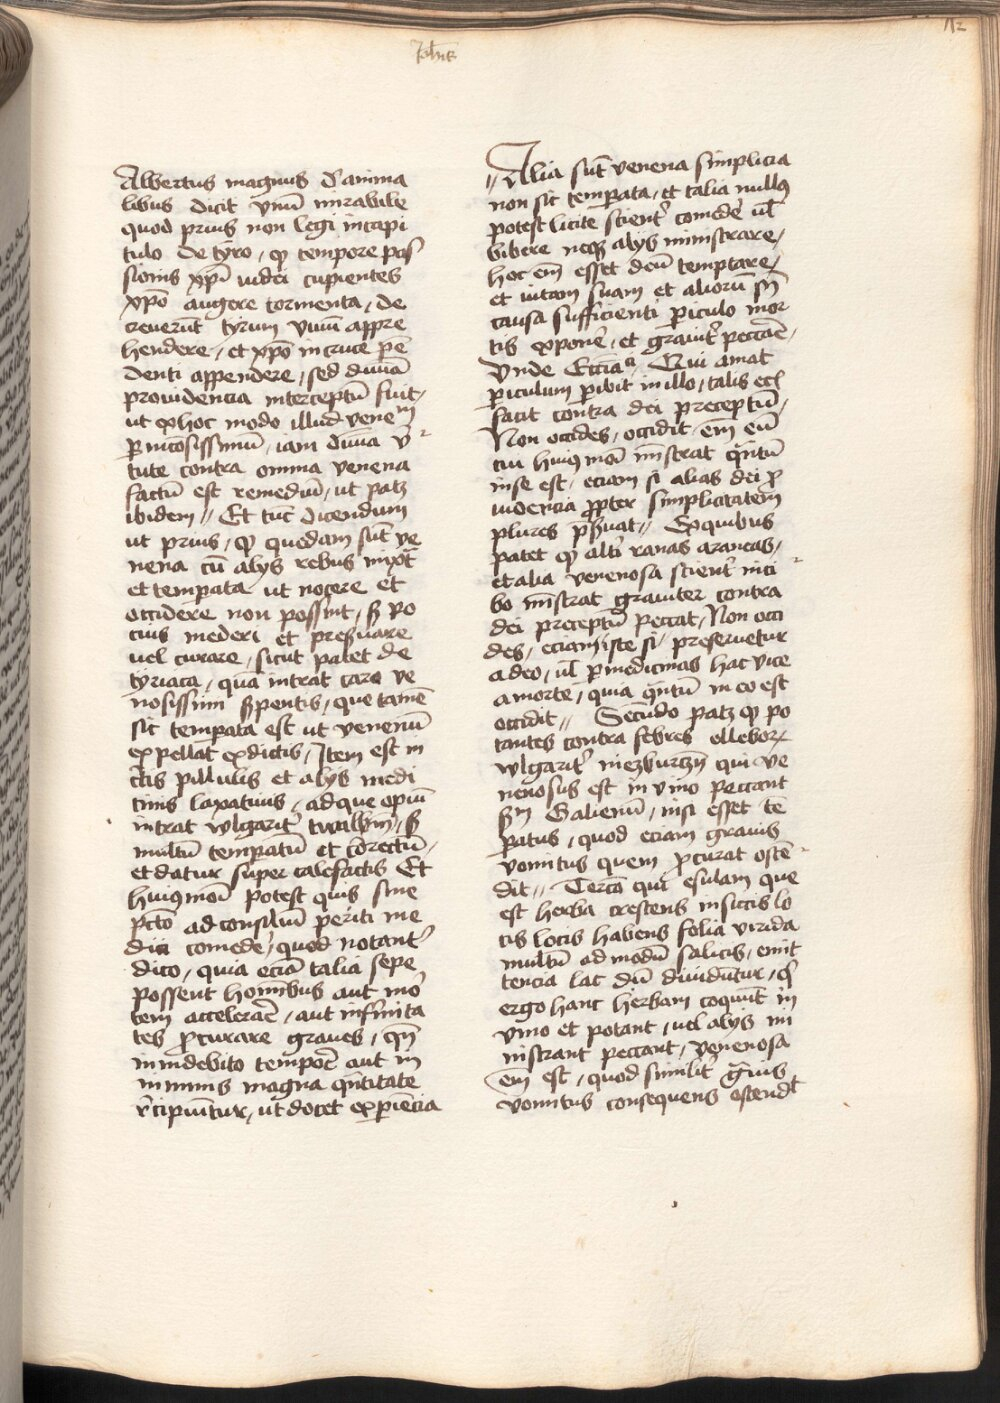 112
Albertus magnus d' anima
libus dicit vnū mirabile
quod prius non legi in capi
tulo de tyro, qꝫ tempore pas
sionis xp̄i iudei cupientes
xp̄o augere tormenta, de
creuerūt tyrum viuū appre
hendere, et xp̄o in cruce pē
denti appendere, sed diuīa
prouidencia interceptū fuit,
ut ex hoc modo illud venen̄
ꝑnicōsissimū, iam diuīa v̄
tute contra omnia venena
factū est remediū, ut patꝫ
ibidem // Et tūc dicendum
ut prius, qꝫ quedam sūt ve
nena cū alys rebus mixta
et temꝑata ut nocere et
occidere non possint, sꝫ po
cius mederi et preẜuare
uel curare, sicut patet de
tyriaca, quā intrat caro ve
nosissimi ẜpentis, que tamē
sic temꝑata est ut venenū
expellat ex dictis, Item est in
ctis pillulis et alys medi
cinis laxatiuis, ad que opiū
intrat wlgarit'
multū temꝑatū et correctū,
et datur super calefactis Et
huiꝰmōi potest quis sine
pctō ad consiliū periti me
dici comedē, quod notant'
dico, quia eciā talia sepe
possent hominibus aut mor
tem accelerare, aut infirmita
tes ꝓcurare graues, qn̄
in indebito tempore aut in
nimis magna quātitate
recipiūtur, ut docet exꝑiēcia
// Alia sūt venena simplicia
non sic temꝑata, et talia nullꝰ
potest licite scient' comedē uł
bibere neqꝫ alys ministrare,
hoc em̄ esset deū temptare,
et uitam suam et aliorū sn̄
causa sufficienti ꝑiculo mor
tis exponē, et grauit' peccare,
Vnde Ecciā Qui amat
ꝑiculum ꝑibit in illo, talis ecī
facit contra dei preceptū,
Non occides, occidit em̄ eū
cui huiꝰmōi ministrat quātū
in se est, eciam si alias dei ꝓ
uidencia ꝓpter simplicitatem
plures preẜuat // Ex quibus
patet qꝫ alt'i ranas araneas,
et alia venenosa scient' in ci
bo mīstrat grauiter contra
dei preceptū peccat, Non occi
des, eciam iste si preseruetur
a deo, uł ꝑ medicinas hac vice
a morte, quia quātū in eo est
occidit // Secūdo patꝫ qꝫ po
tantes contra febres ellebor
wlgarit' niezburczn̄ qui ve
nenosus est in vino peccant
ẜm Galienū, nisi esset tē
ꝑatus, quod eciam grauis
vomitus quem ꝓcurat ostē
dit // Tercio qui esulam que
est herba crescens in siccis lo
cis locis habens folia virida
multū ad modū salicis, emit
tencia lac dū diuidūtur, qi
ergo hanc herbam coqūt in
vino et potant, uel alys mi
nistrant peccant, venenosa
em̄ est, quod similit' grauis
vomitus consequens ostendt